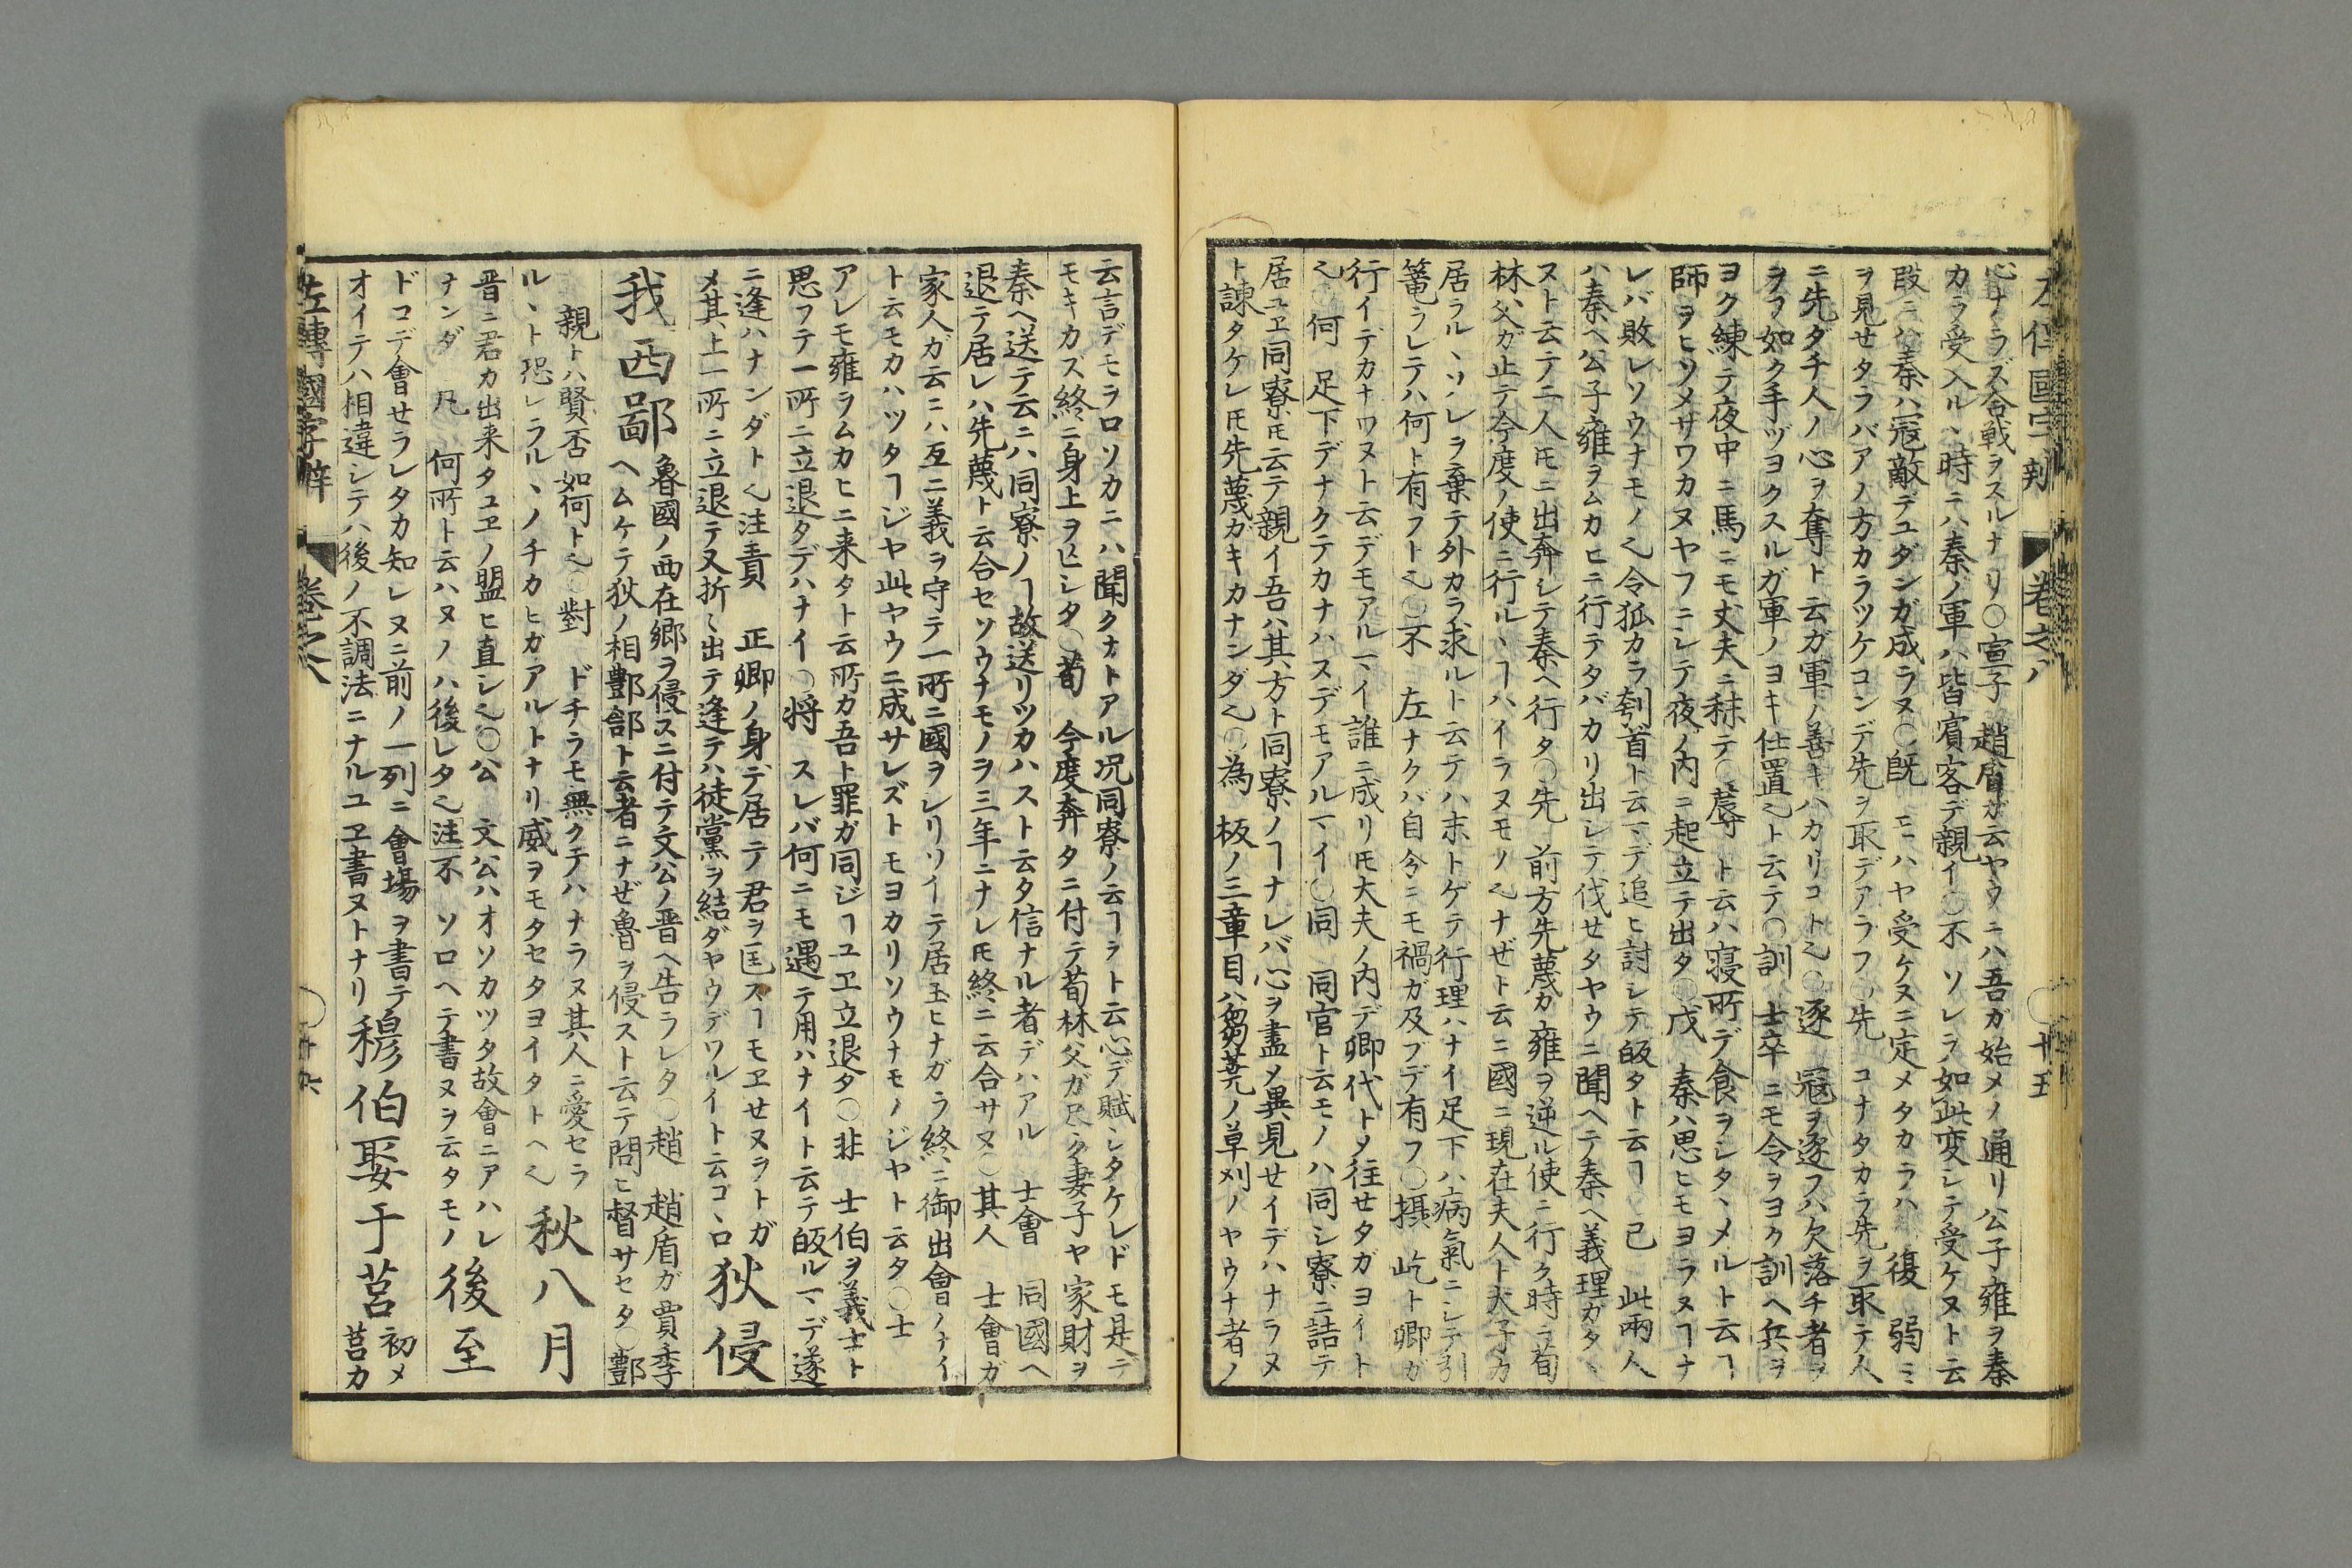 左傳國字辨 卷之八 十五
心ナラズ合戦ヲスルナリ○宣子 趙盾ガ云ヤウニハ吾ガ始メノ通リ公子雍ヲ秦
カラ受入ルヽ時ニハ秦ノ軍ハ皆賓客デ親イ○不 ソレヲ如此変シテ受ケヌト云
段ニハ秦ハ冦敵デユダンガ成ラヌ○既 モハヤ受ケヌニ定メタカラハ 復 弱ミ
ヲ見セタラバアノ方カラツケコンデ先ヲ取デアラフ○先 コナタカラ先ヲ取テ人
ニ先ダチ人ノ心ヲ奪ト云ガ軍ノ善キハカリコト乄○逐 冦ヲ逐フハ欠落チ者ヲ
ヲフ如ク手ヅヨクスルガ軍ノヨキ仕置乄ト云テ○訓 士卒ニモ令ヲヨク訓ヘ兵ヲ
ヨク練テ夜中ニ馬ニモ丈夫ニ秣テ○蓐 ト云ハ寝所デ食ヲシタヽメルト云ヿ
師ヲヒソメサワカヌヤフニシテ夜ノ内ニ起立テ出タ○戊 秦ハ思ヒモヨラヌヿナ
レバ敗レソウナモノ乄令狐カラ刳首ト云マデ追ヒ討シテ皈タト云ヿ 己 此兩人
ハ秦ヘ公子雍ヲムカヒニ行テタバカリ出シテ伐セタヤウニ聞ヘテ秦ヘ義理ガタヽ
ヌト云テ二人モニ出奔シテ秦ヘ行タ○先 前方先蔑カ雍ヲ逆ル使ニ行ク時ニ荀
林父ガ止テ今度ノ使ニ行ルヽヿハイラヌモノ乄ナゼト云ニ國ニ現在夫人ト太子カ
居ラルヽソレヲ棄テ外カラ求ルト云テハ末トゲテ行理ハナイ足下ハ病氣ニシテ引
篭ラレテハ何ト有フト乄○不 左ナクバ自今ニモ禍ガ及ブデ有フ○攝 屹ト卿ガ
行イデカナワヌト云デモアルマイ誰ニ成リ𪜈大夫ノ内デ卿代トメ往セタガヨイト
乄○何 足下デナクテカナハスデモアルマイ○同 同官ト云モノハ同シ寮ニ詰テ
居ユヱ同寮𪜈云テ親イ吾ハ其方ト同寮ノヿナレバ心ヲ盡メ異見セイデハナラヌ
ト諫タケレ𪜈先蔑カキカナンダ乄○為 板ノ三章目ハ芻蕘ノ草刈ノヤウナ者ノ
云言デモヲロソカニハ聞クナトアル况同寮ノ云ヿヲト云心デ賦シタケレドモ是デ
モキカズ終ニ身上ヲ亡シタ○荀 今度奔タニ付テ荀林父ガ尽ク妻子ヤ家財ヲ
秦ヘ送テ云ニハ同寮ノヿ故送リツカハスト云タ信ナル者デハアル 士會 同國ヘ
退テ居レハ先蔑ト云合セソウナモノヲ三年ニナレ𪜈終ニ云合サヌ○其人 士會ガ
家人ガ云ニハ互ニ義ヲ守テ一所ニ國ヲレリソイテ居玉ヒナガラ終ニ御出會ノナイ
ト云モカハツタヿジヤ此ヤウニ成サレズトモヨカリソウナモノジヤト云タ○士
アレモ雍ヲムカヒニ来タト云所カ吾ト罪ガ同ジヿユヱ立退タ○非 士伯ヲ義士ト
思フテ一所ニ立退タデハナイ○将 スレバ何ニモ遇テ用ハナイト云テ皈ルマデ遂
ニ逢ハナンダト乄注責 正卿ノ身デ居テ君ヲ匡スヿモヱせヌヲトガ
メ其上一所ニ立退テ又折々出テ逢テハ徒黨ヲ結ダヤウデワルイト云コヽロ 狄侵
我西鄙 魯國ノ西在郷ヲ侵スニ付テ文公ノ晋ヘ告ラレタ○趙 趙盾ガ賈季
ヘムケテ狄ノ相酆郃ト云者ニナゼ魯ヲ侵スト云テ問ヒ督サセタ○酆
親トハ賢否如何ト乄○對 ドチラモ無クテハナラヌ其人ニ愛セラ
ルヽト恐レラルヽノチカヒガアルトナリ威ヲモタセタヨイタトヘ乄 秋八月
晋ニ君カ出来タユヱノ盟ヒ直シ乄○公 文公ハオソカツタ故會ニアハレ
ナンダ 凡 何所ト云ハヌノハ後レタ乄注不 ソロヘテ書ヌヲ云タモノ 後至
ドコデ會セラレタカ知レヌニ前ノ一列ニ會場ヲ書テ
オイテハ相違シテハ後ノ不調法ニナルユヱ書ヌトナリ 穆伯娶于莒 初メ
莒カ
左傳國字辨 卷之八